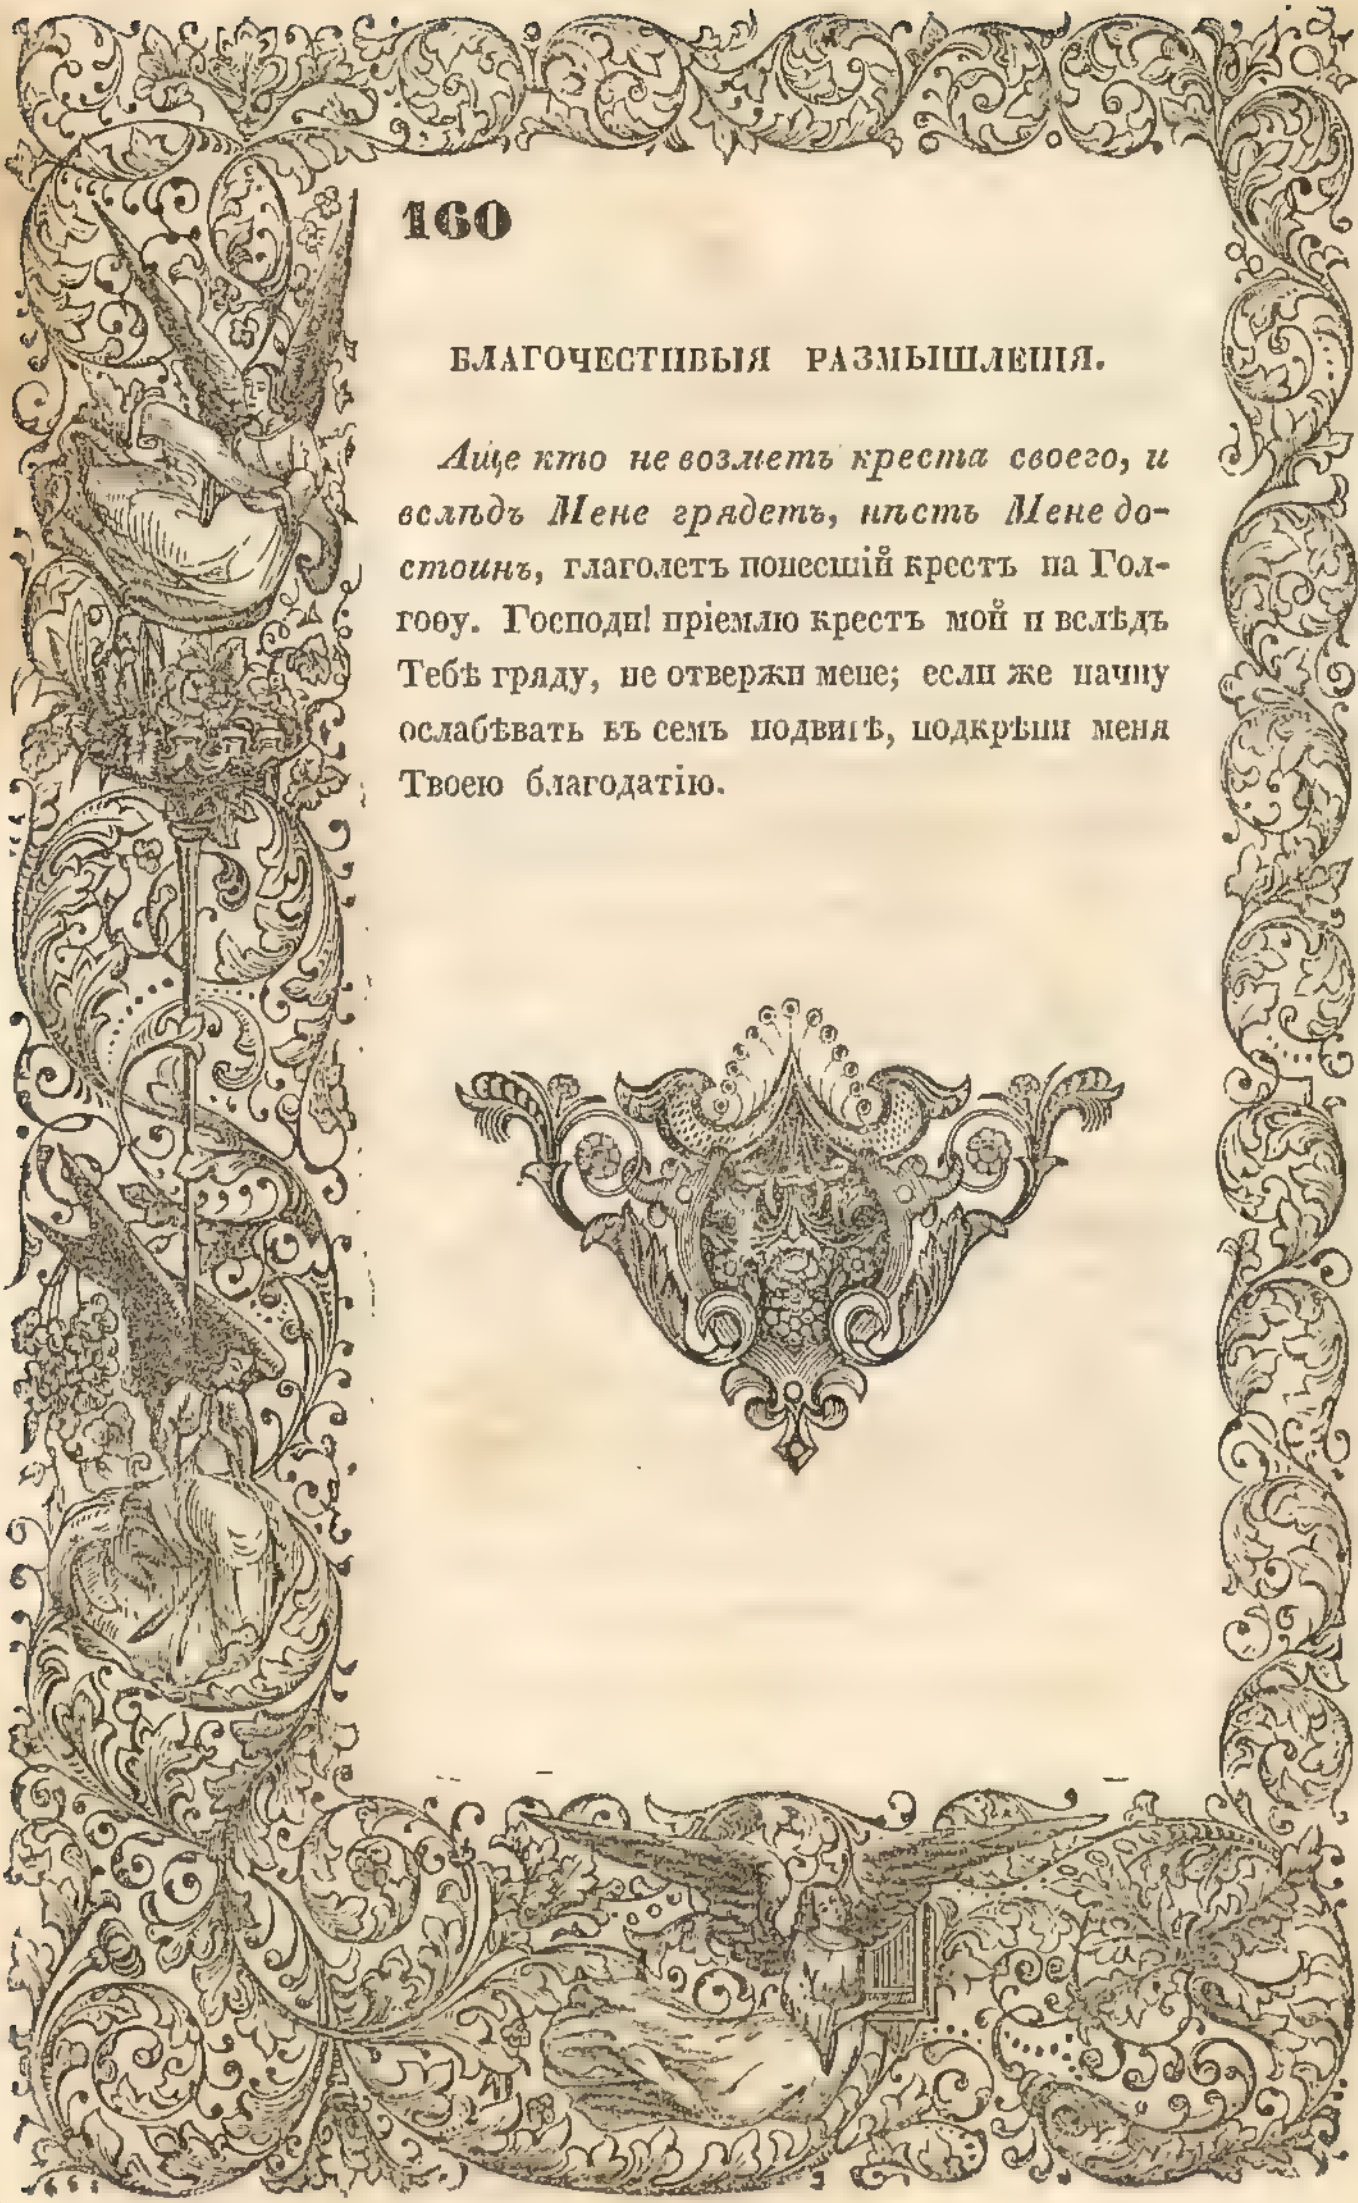 160
БЛАГОЧЕСТИВЫЯ РАЗМЫШЛЕНІЯ.
Аще кто не возметъ креста своего, и
вслѣдъ Мене грядетъ, нѣсть Мене до-
стоинъ, глаголетъ понесшій крестъ на Гол-
гоѳу. Господи! пріемлю крестъ мой и вслѣдъ
Тебѣ гряду, не отвержи мене; если же начну
ослабѣвать въ семъ подвигѣ, подкрѣпи меня
Твоею благодатію.